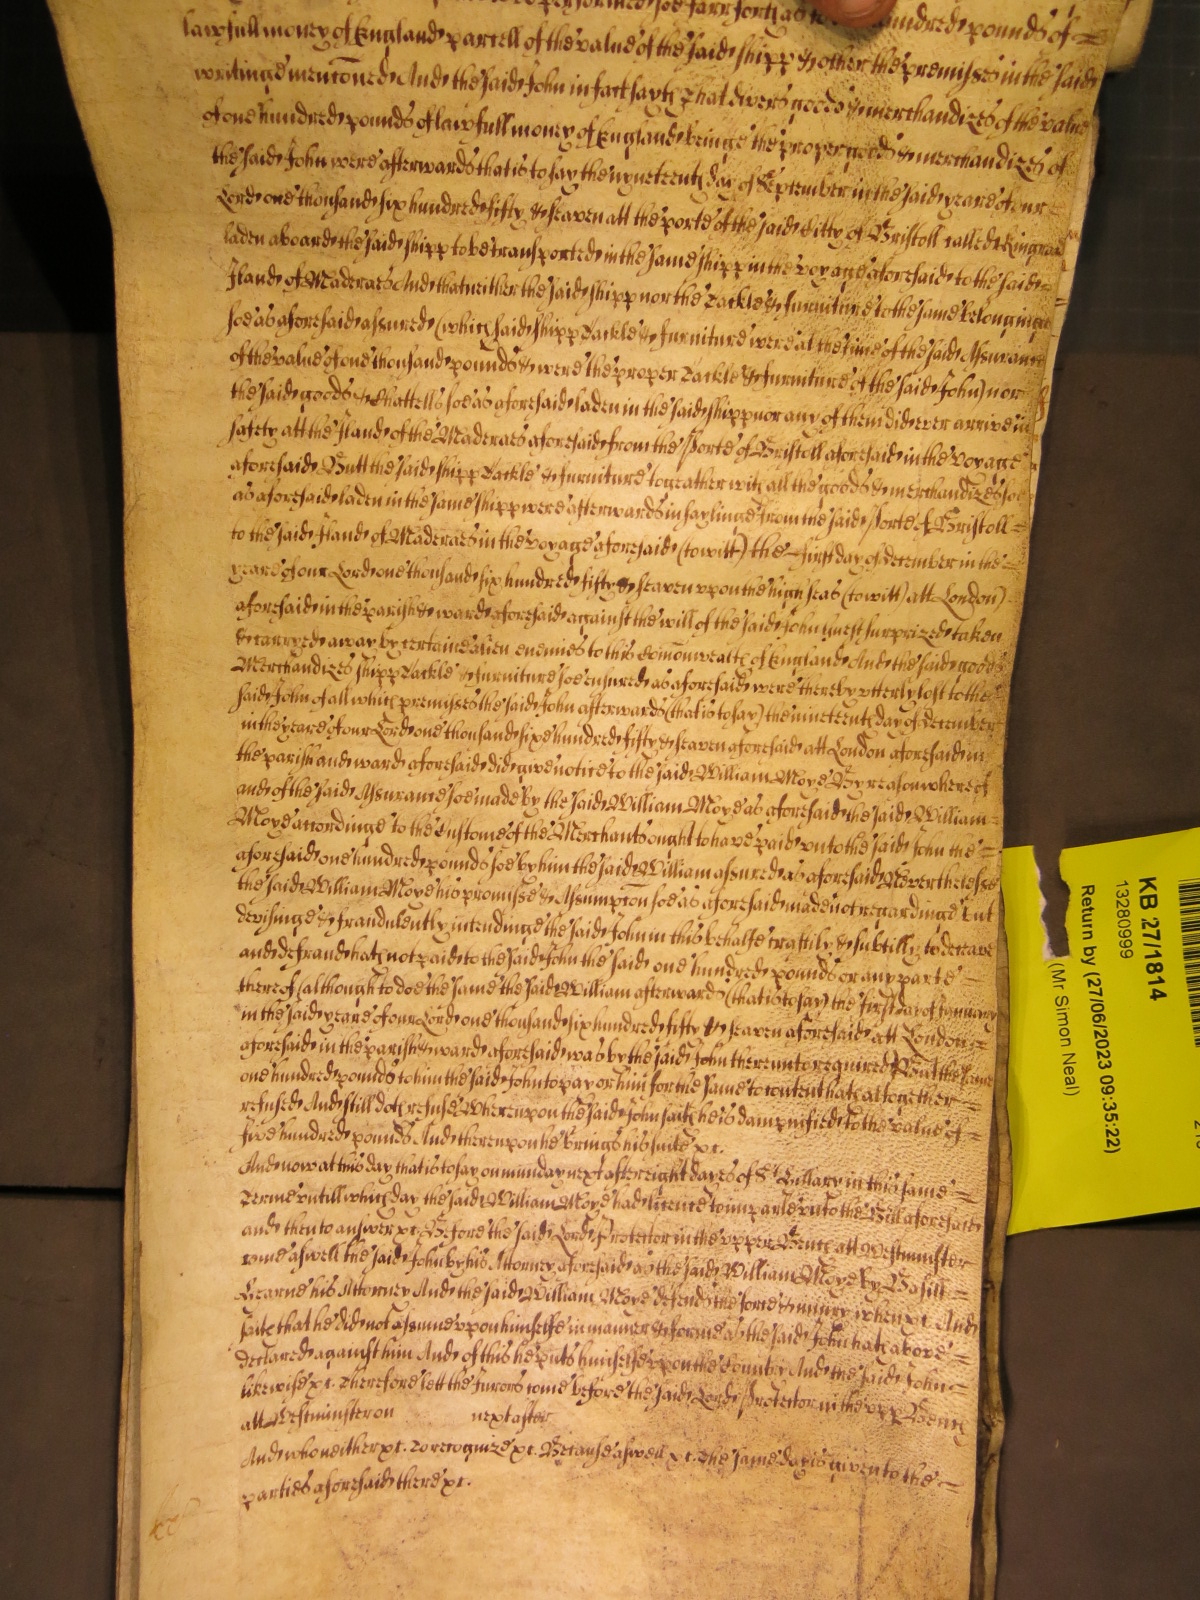 performed soe farr forth as hundred pounds of
lawfull money of England parcell of the value of the said shipp & other the premisses in the said
writinge mencōned And the said John in fact sayth That divers goods & merchandizes of the value
of one hundred pounds of lawfull money of England beinge the proper goods & merchandizes of
the said John were afterwards that is to say the nyneteenth day of September in the said yeare of our
Lord one thousand six hundred fifty & seaven att the porte of the said Citty of Bristoll called Kingrad
laden aboard the said shipp to be transported in the same shipp in the voyage aforesaid to the said
Iland of Maderaes And that neither the said shipp nor the Tackle & furniture to the same belonginge
soe as aforesaid assured (which said shipp Tackle & furniture were at the time of the said Assurance
of the value of one thousand pounds & were the proper Tackle & furniture of the said John) nor
the said goods & Chattells soe as aforesaid laden in the said shipp nor any of them did ever arrive in
safety att the Iland of the Maderaes aforesaid from the Porte of Bristoll aforesaid in the voyage
aforesaid Butt the said shipp Tackle & furniture togeather with all the goods & merchandizes soe
as aforesaid laden in the same shipp were afterwards in saylinge from the said Porte of Bristoll
to the said Iland of Maderaes in the voyage aforesaid (to witt) the first day of December in the
yeare of our Lord one thousand six hundred fifty & seaven upon the high seas (to witt) att London
aforesaid in the parish & ward aforesaid against the will of the said John Guest surprized taken
& carryed away by certaine alien enemies to this Com̄onwealth of England And the said goods
Merchandizes shipp Tackle & furniture soe ensured as aforesaid were thereby utterly lost to the
said John of all which premisses the said John afterwards (that is to say) the nineteenth day of December
in the yeare of our Lord one thousand sixe hundred fifty & seaven aforesaid att London aforesaid in
the parish and ward aforesaid did give notice to the said William Moye By reason whereof
and of the said Assurance soe made by the said William Moye as aforesaid the said William
Moye accordinge to the Custome of the Merchants ought to have paid unto the said John the
aforesaid one hundred pounds soe by him the said William assured as aforesaid Neverthelesse
the said William Moye his promisse & Assumpcōn soe as aforesaid made not regardinge but
devisinge & fraudulently intendinge the said John in this behalfe craftily & subtilly to deceave
and defraud hath not paid to the said John the said one hundred pounds or any parte
thereof (although to doe the same the said William afterwards (that is to say) the first day of January
in the said yeare of our Lord one thousand six hundred fifty & seaven aforesaid att London
aforesaid in the parish & ward aforesaid was by the said John thereunto required) But the same
one hundred pounds to him the said John to pay or him for the same to content hath altogether
refused And still doth refuse Whereupon the said John saith he is dampnified to the value of
five hundred pounds And thereupon he brings his suite &c.
And now at this day that is to say on munday next after eight dayes of St. Hillary in this same
Terme untill which day the said William Moye had licence to imparle unto the Bill aforesaid
and then to answer &c. Before the said Lord Protector in the upper Bench att Westminster
come aswell the said John by his Attorney aforesaid as the said William Moye by Basill
Hearne his Attorney And the said William Moye defends the force & iniury when &c. And
saith that he did not assume upon himselfe in manner & forme as the said John hath above
declared against him And of this he puts himselfe upon the Country And the said John
likewise &c. Therefore lett the Jurors come before the said Lord Protector in the upp Bench
att Westminster on next after
And who neither &c. to recognize &c. Because aswell &c. The same day is given to the
parties aforesaid there &c.
KB 27/1814
13280999
Return by (27/06/2023 09:35:22)
(Mr Simon Neal)